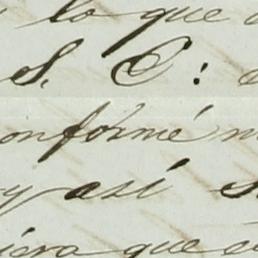 lo que
S. E:
onformé
y así
iera que